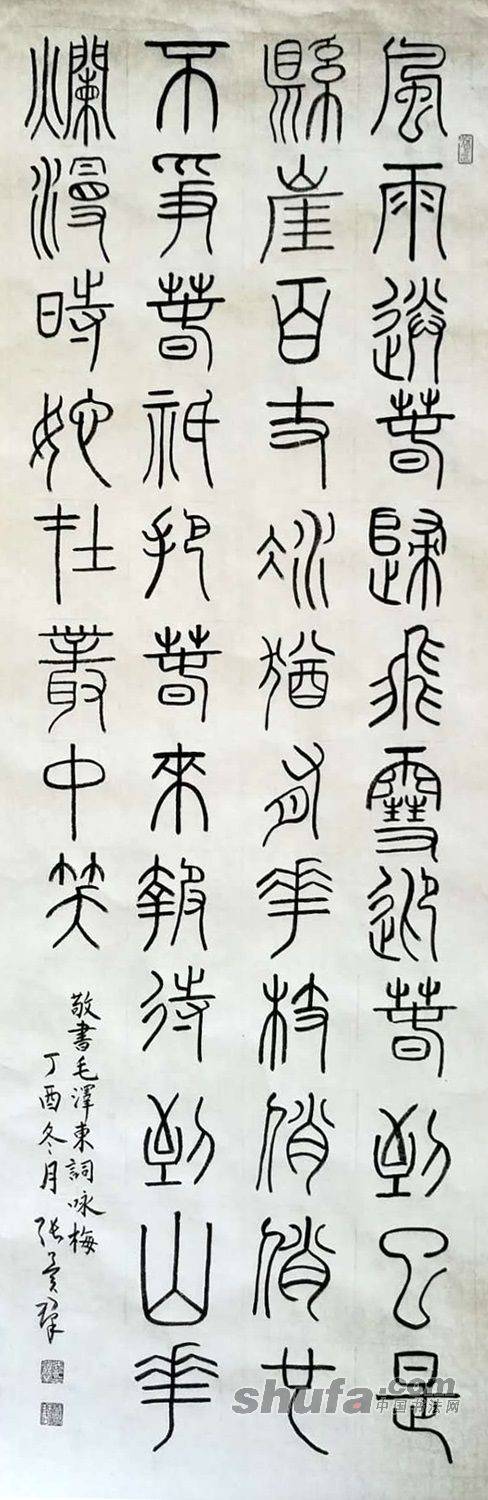 風雨送春歸飛雪迎春到已是
縣崖百丈冰猶有華枝俏俏也
不爭春祇把春來報待到山華
爛漫時她在叢中笑
敬書毛澤東詞咏梅
丁酉冬月
shufa.com
中国书法网